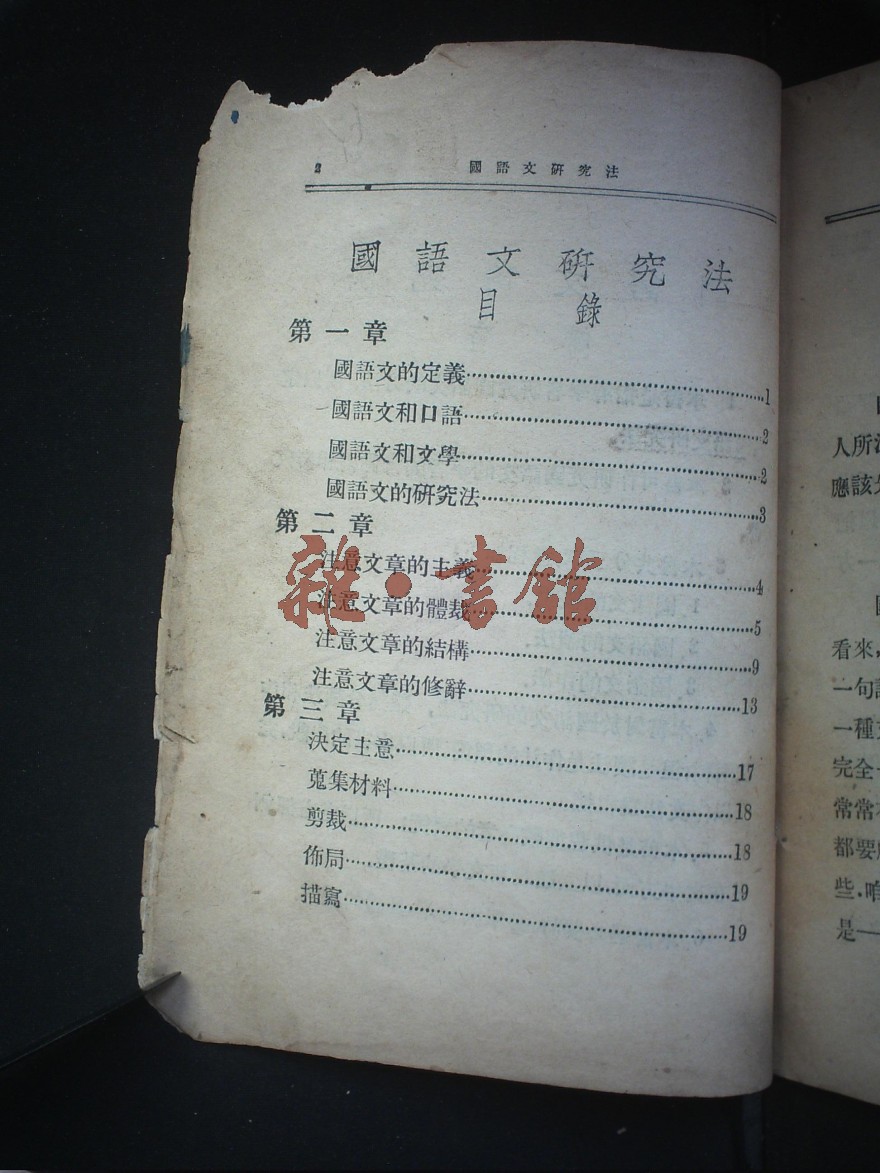 2 國語文研究法
國語文研究法
目錄
第一章
國語文的定義……1
國語文和口語……2
國語文和文學……2
國語文的研究法……3
第二章
注意文章的主義……4
注意文章的體裁……5
注意文章的結構……9
注意文章的修辭……13
第三章
決定主意……17
蒐集材料……18
剪裁……18
佈局……19
描寫……19
雜·書館
人所
應該
看來,
一句
一種
完全
常常
都要
些.
是—